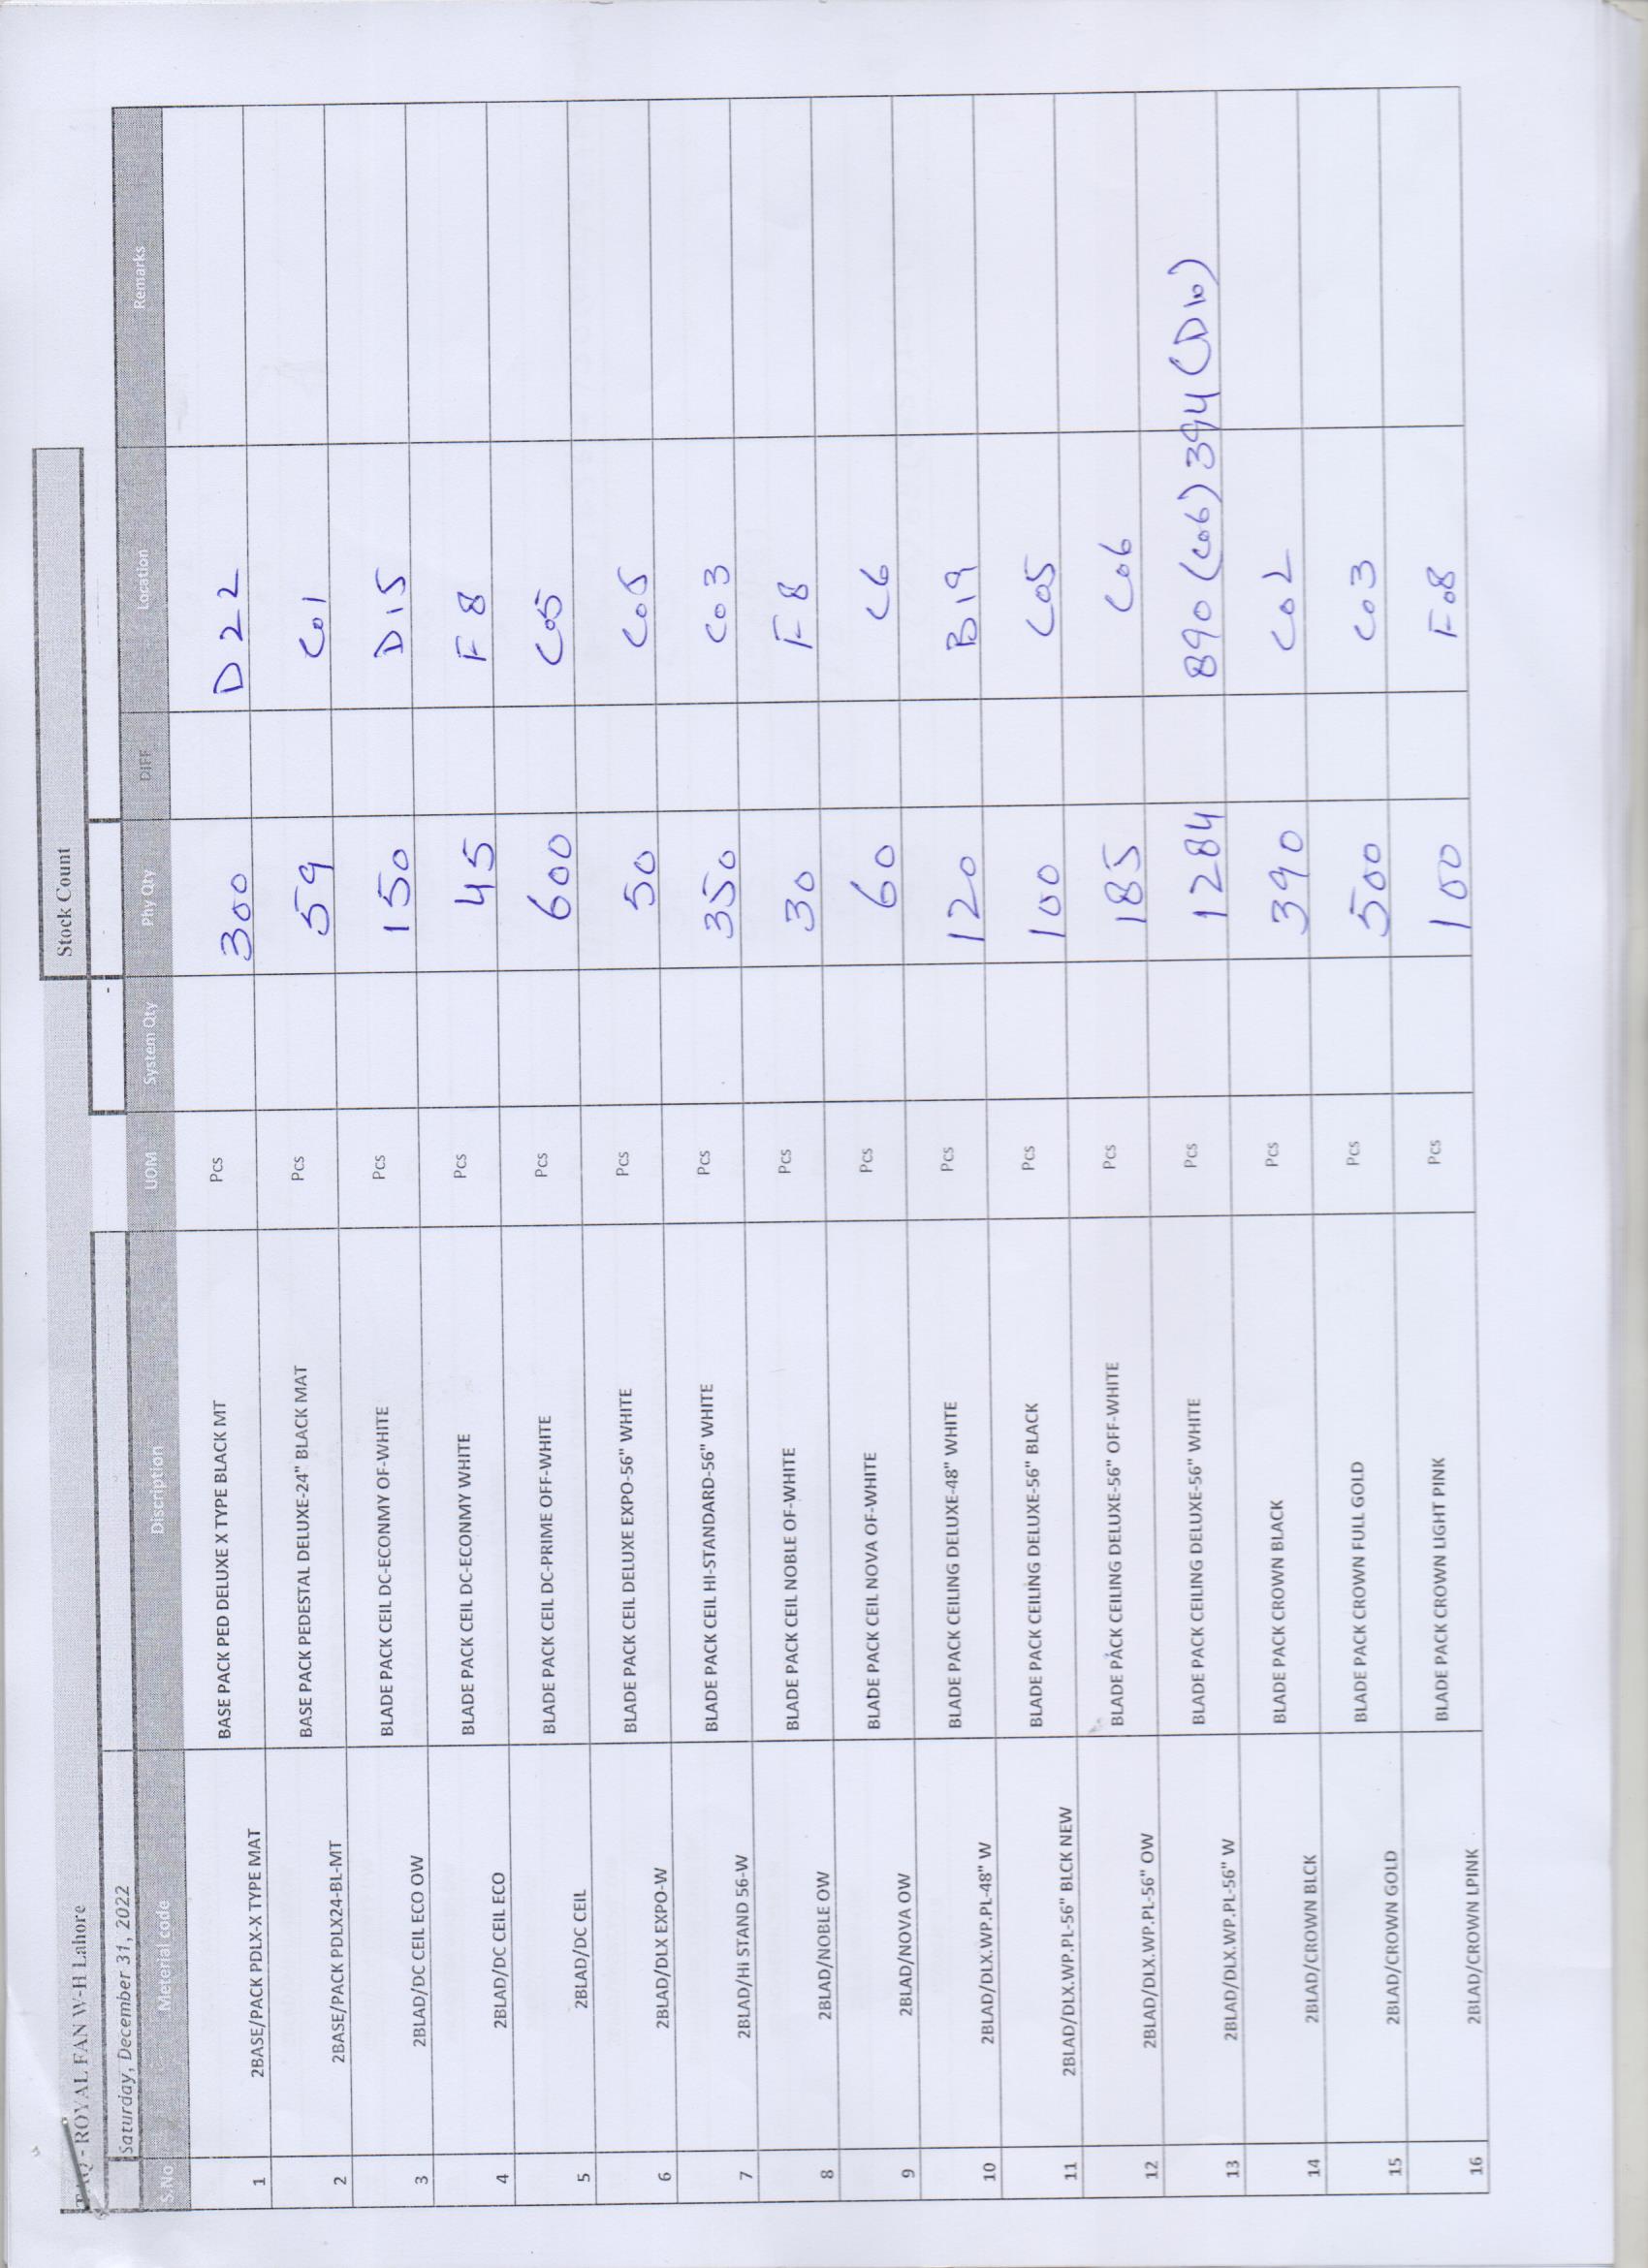 TAQ - ROYAL FAN W-H Lahore
Stock Count
Saturday, December 31, 2022
-
S.No Meterial code Discription UOM System Qty Phy Qty DIFF Location Remarks
1 2BASE/PACK PDLX-X TYPE MAT BASE PACK PED DELUXE X TYPE BLACK MT Pcs 300 D22
2 2BASE/PACK PDLX24-BL-MT BASE PACK PEDESTAL DELUXE-24" BLACK MAT Pcs 59 C01
3 2BLAD/DC CEIL ECO OW BLADE PACK CEIL DC-ECONMY OF-WHITE Pcs 150 D15
4 2BLAD/DC CEIL ECO BLADE PACK CEIL DC-ECONMY WHITE Pcs 45 F8
5 2BLAD/DC CEIL BLADE PACK CEIL DC-PRIME OFF-WHITE Pcs 600 C05
6 2BLAD/DLX EXPO-W BLADE PACK CEIL DELUXE EXPO-56" WHITE Pcs 50 C05
7 2BLAD/HI STAND 56-W BLADE PACK CEIL HI-STANDARD-56" WHITE Pcs 350 C03
8 2BLAD/NOBLE OW BLADE PACK CEIL NOBLE OF-WHITE Pcs 30 F8
9 2BLAD/NOVA OW BLADE PACK CEIL NOVA OF-WHITE Pcs 60 C6
10 2BLAD/DLX.WP.PL-48" W BLADE PACK CEILING DELUXE-48" WHITE Pcs 120 B19
11 2BLAD/DLX.WP.PL-56" BLCK NEW BLADE PACK CEILING DELUXE-56" BLACK Pcs 100 C05
12 2BLAD/DLX.WP.PL-56" OW BLADE PACK CEILING DELUXE-56" OFF-WHITE Pcs 185 C06
13 2BLAD/DLX.WP.PL-56" W BLADE PACK CEILING DELUXE-56" WHITE Pcs 1284 890 (C06) 394 (D10)
14 2BLAD/CROWN BLCK BLADE PACK CROWN BLACK Pcs 390 C02
15 2BLAD/CROWN GOLD BLADE PACK CROWN FULL GOLD Pcs 500 C03
16 2BLAD/CROWN LPINK BLADE PACK CROWN LIGHT PINK Pcs 100 F08